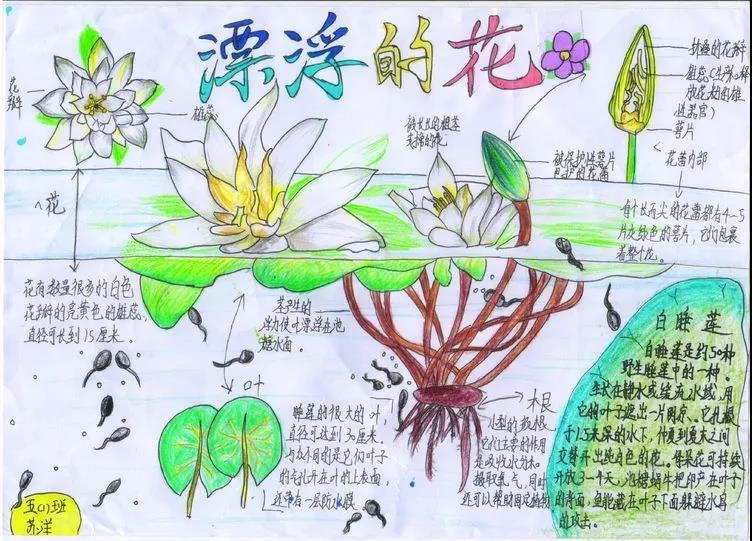 漂浮的花
花瓣
雄蕊
花
花有数量很多的白色
花瓣的亮黄色的雄蕊,
直径可长到15厘米。
被长长的粗茎
支撑的花
被保护性萼片
包护的花蕾
封逢的花瓣
雄蕊(生产和释
放花粉的雄
性器官)
萼片
花蕾内部
每个长而尖的花蕾都有4-5
片灰绿色的萼片,它们包裹
着整个花。
茎产生的
浮力使叶漂浮在池
塘水面。
叶
睡莲的很大的叶,
直径可达到30厘米。
与众不同的是它们叶子
的气孔开在叶的上表面,
还带有一层防水膜
根
小型的散根,
它们主要的作用
是吸收水分和
摄取氧气,同时
还可以帮助固定植物
白睡莲
白睡莲是约50种
野生睡莲中的一种。
生长在静水或缓流水域,用
它的叶子遮出一片阴凉。它扎根
于1.5米深的水下,仲夏到夏末之间
交替开出纯白色的花。每朵花可持续
开放3一个天,池塘蜗牛把卵产在叶子
的背面,鱼能藏在叶子下面躲避水鸟
的攻击。
五(1)班
苏洋